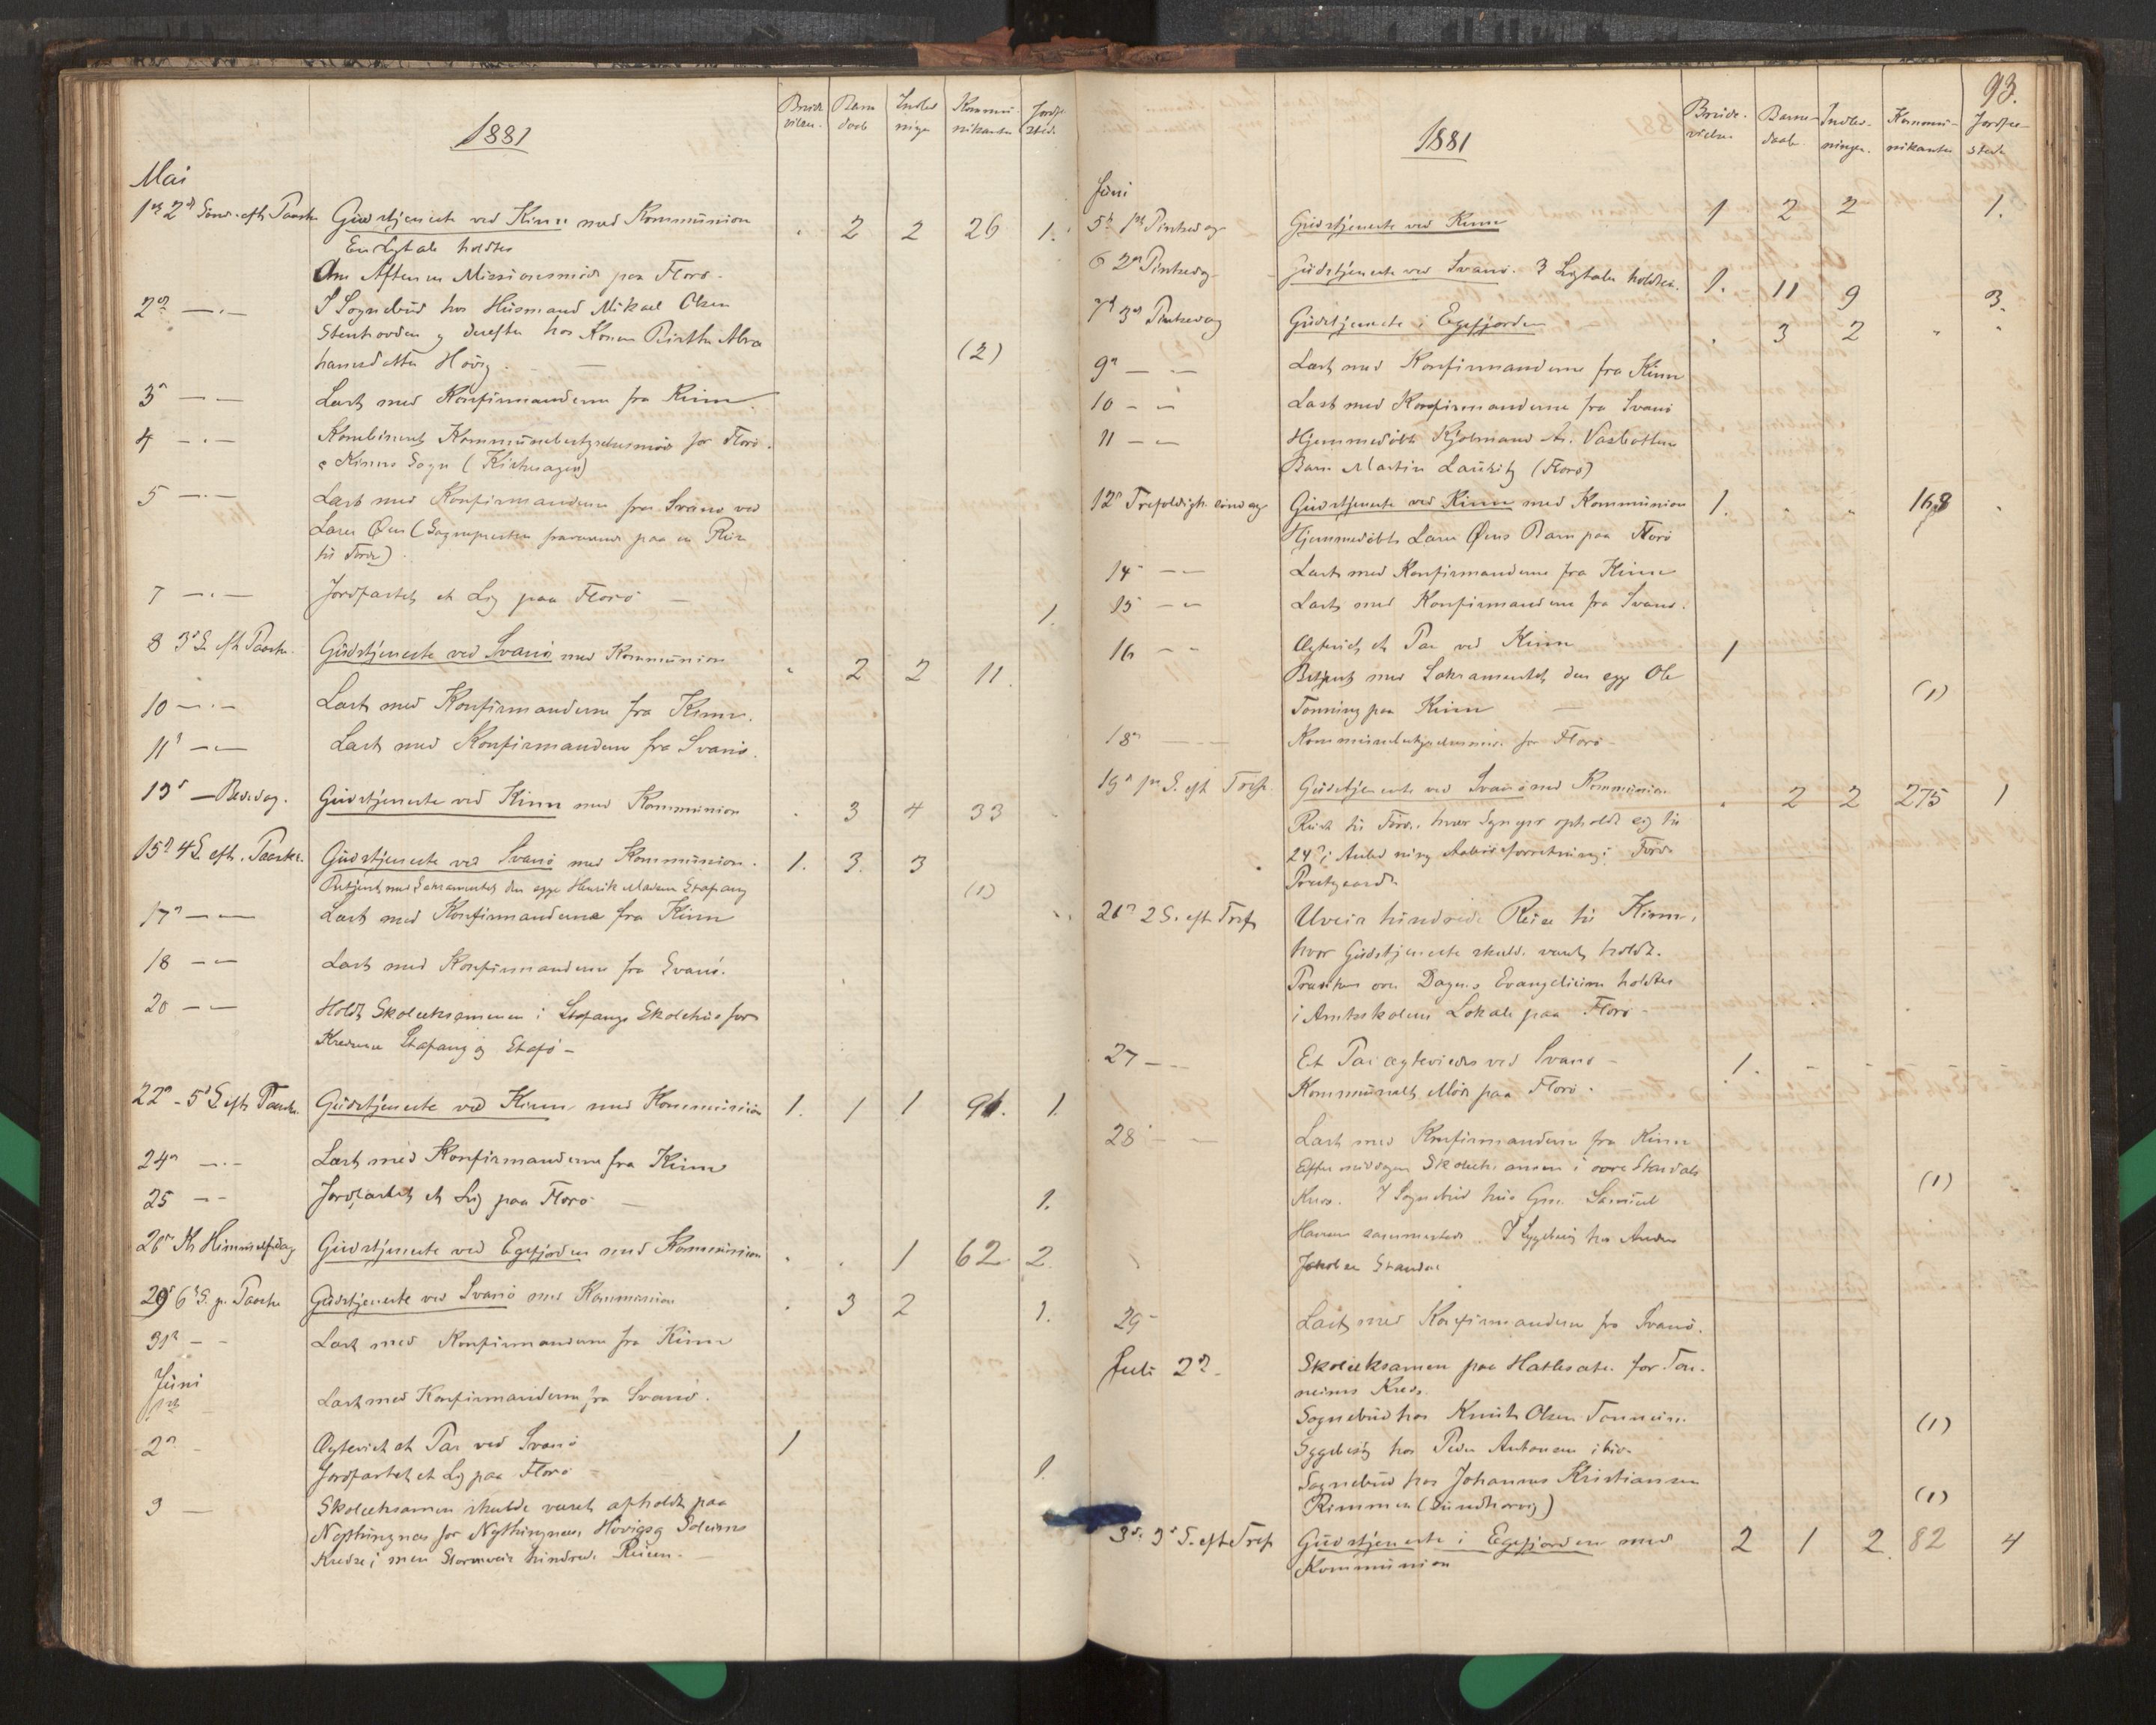 1881
Brude vielser. Barne daab Indled ninger Kommu- nikanter Jordfæ stede
Mai
1ste 2den Sønd. eft. Paaske Gudstjeneste ved Kinn med Kommunion . 2 2 26 1.
En Ligtale holdtes
Om Aftenen Missionsmøde paa Florø.
2den — . — I Sognebud hos Husmand Mikael Olsen
og derefter hos Konen Birthe Abra
hamsdatter Hovig (2)
3die — — Læst med Konfirmanderne fra Kinn
4 — . — Kombineret Kommunebestyrelsesmøde for Florø.
& Kinns Sogn (Kirkesagen)
5 — . — Læst med Konfirmanderne fra Svanø ved
Lærer Øen (Sognepresten fraværende paa en Reise
til Førde).
7 — . — Jordfæstet et Lig paa Florø — 1.
8 3die S. eft. Paaske. Gudstjeneste ved Svanø med Kommunion . 2 2 11.
10 — . — Læst med Konfirmanderne fra Kinn.
11te — — Læst med Konfirmanderne fra Svanø.
13de — Bededag. Gudstjeneste ved Kinn med Kommunion . 3 4 33 .
15de 4 S. eft. Paaske. Gudstjeneste ved Svanø med Kommunion. 1. 3. 3
Betjent med Sakramentet den syge Henrik Madsen Stafang (1)
17de — — Læst med Konfirmanderne fra Kinn
18 — — Læst med Konfirmanderne fra Svanø.
20 — — Holdt Skoleeksamen i Stafangs Skolehus for
Kredsene Stafang og Stafø —
22de — 5te S. eft. Paaske. Gudstjeneste ved Kinn med Kommunion 1. 1 1 91. 1.
24de — . — Læst med Konfirmanderne fra Kinn
25 — — Jordfæstet et Lig paa Florø — 1.
26de Kr. Himmelfartsdag Gudstjeneste ved Egefjorden med Kommunion . . 1 62 2.
29 6te S. p. Paaske Gudstjeneste ved Svanø med Kommunion . 3 2 1.
31te — — Læst med Konfirmanderne fra Kinn
Juni
1ste Læst med Konfirmanderne fra Svanø.
2den — Ægteviet et Par ved Svanø 1
Jordfæstet et Lig paa Florø — 1.
3 — Skoleeksamen skulde været afholdt paa
Nyttingnes for Nyttingnes Hovigs og Solheims
Kredse; men Stormveir hindrede Reisen. —
93.
1881
Brude- vielser Barne- daab Indled- ninger. Kommu- nikanter Jordfæ- stede
Juni
5te 1ste Pintsedag Gudstjeneste ved Kinn 1 2 2 1.
6 2den Pintsedag Gudstjeneste ved Svanø. 3 Ligtaler holdtes. 1. 11 9 3.
7de 3die Pintsedag Gudstjeneste i Egefjorden . 3 2 . .
9de — . — Læst med Konfirmanderne fra Kinn
10 — — Læst med Konfirmanderne fra Svanø
11 — — Hjemmedøbt Kjøbmand A. Vasbottens
Barn Martin Lauritz (Florø)
12te Trefoldigh. søndag Gudstjeneste ved Kinn med Kommunion 1. . . 168 .
Hjemmedøbt Lærer Øens Barn paa Florø
14 — — Læst med Konfirmanderne fra Kinn
15 — — Læst med Konfirmanderne fra Svanø.
16 — — Ægteviet et Par ved Kinn 1
Betjent med Sakramentet den syge Ole
Tonning paa Kinn — (1)
18de — — Kommunebestyrelsesmøde for Florø —
19de 1ste S. eft. Tref. Gudstjeneste ved Svanø med Kommunion . 2 2 275 1
Reist til Førde, hvor Sognepr. opholdt sig til
24de i Anledning i Førde
Prestegaard.
26de 2 S. eft. Tref. Uveir hindrede Reise til Kinn,
hvor Gudstjeneste skulde været holdt.
Præken over Dagens Evangelium holdtes
i Amtsskolens Lokale paa Florø —
27 — — Et Par ægteviedes ved Svanø — 1. — — —
Kommunalt Møde paa Florø.
28 — — Læst med Konfirmanderne fra Kinn
Eftermiddagen Skoleeksamen i øvre Standals
Kreds. I Sognebud hos Gm. Samuel (1)
Hansen sammesteds. I Sygebesøg hos Anders
Jakobsen Standal
29 — Læst med Konfirmanderne fra Svanø.
Juli 2den — Skoleeksamen paa for Ton-
neims Kreds.
Sognebud hos Knut Olsen Tonneim. (1)
Sygebesøg hos Peder Antonsen ibid.
Sognebud hos Johannes Kristiansen
Rimmen (Sundhovig) (1)
3die 3die S. eft. Tref. Gudstjeneste i Egefjorden med 2 1 2. 82 4
Kommunion